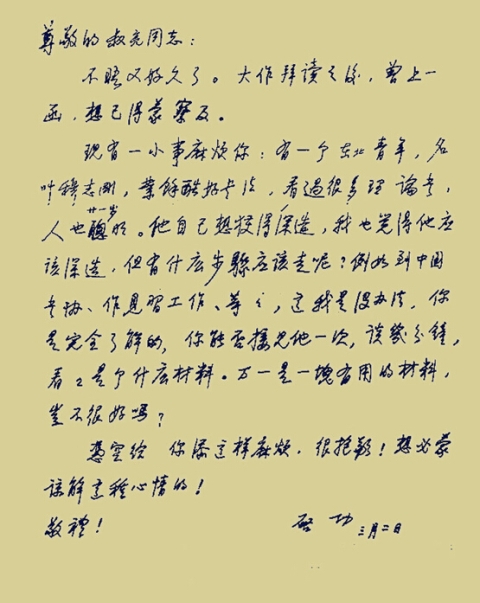 尊敬的叔亮同志：
不晤又好久了。大作拜读之後，曾上一
函，想已得蒙察及。
现有一小事麻烦你：有一个东北青年，名
叶穆志刚，業餘酷好书法，看過很多理論书，
人也聰明。他自己想获得进一步深造，我也觉得他应
该深造，但有什么步驟应该走呢？例如到中国
书协、作見習工作、等之，這我是没办法，你
是完全了解的，你能否接見他一次，谈幾分鐘，
看之是个什么材料。万一是一塊有用的材料，
豈不很好嗎？
憑空给你添这样麻烦，很抱歉！想必蒙
谅解這種心情的！
敬禮！
启功 三月二日